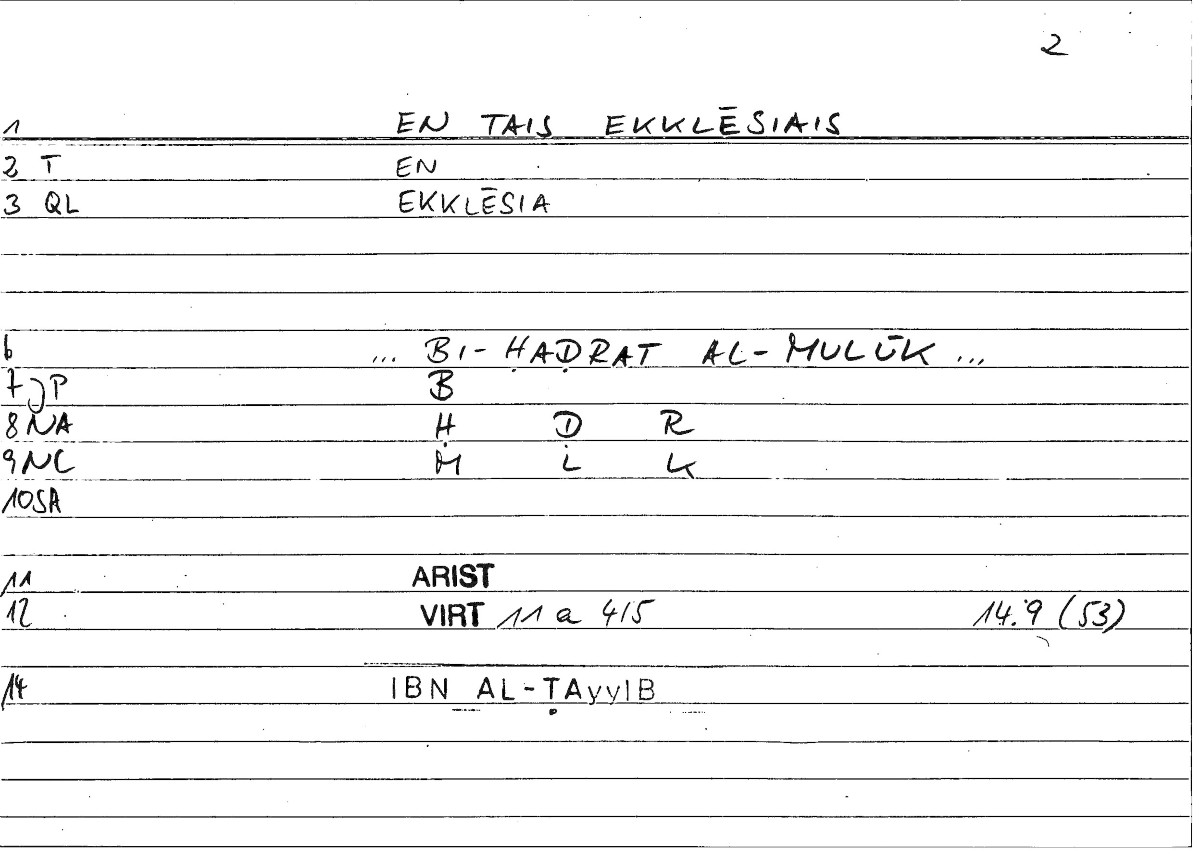 2
1 EN TAIS EKKLĒSIAIS
2 T EN
3 QL EKKLĒSIA
6 ... BI-ḤAḌRAT AL-MULŪK ...
7 JP B
8 NA Ḥ Ḍ R
9 NC M L K
10 SA
11 ARIST
12 VIRT 11 a 4/5 14.9 (53)
14 IBN AL-ṬAyyIB